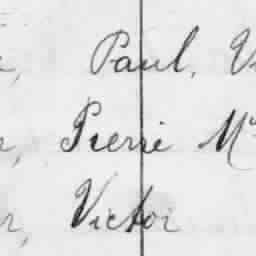 Paul, V
r, Pierre M
r, Victor